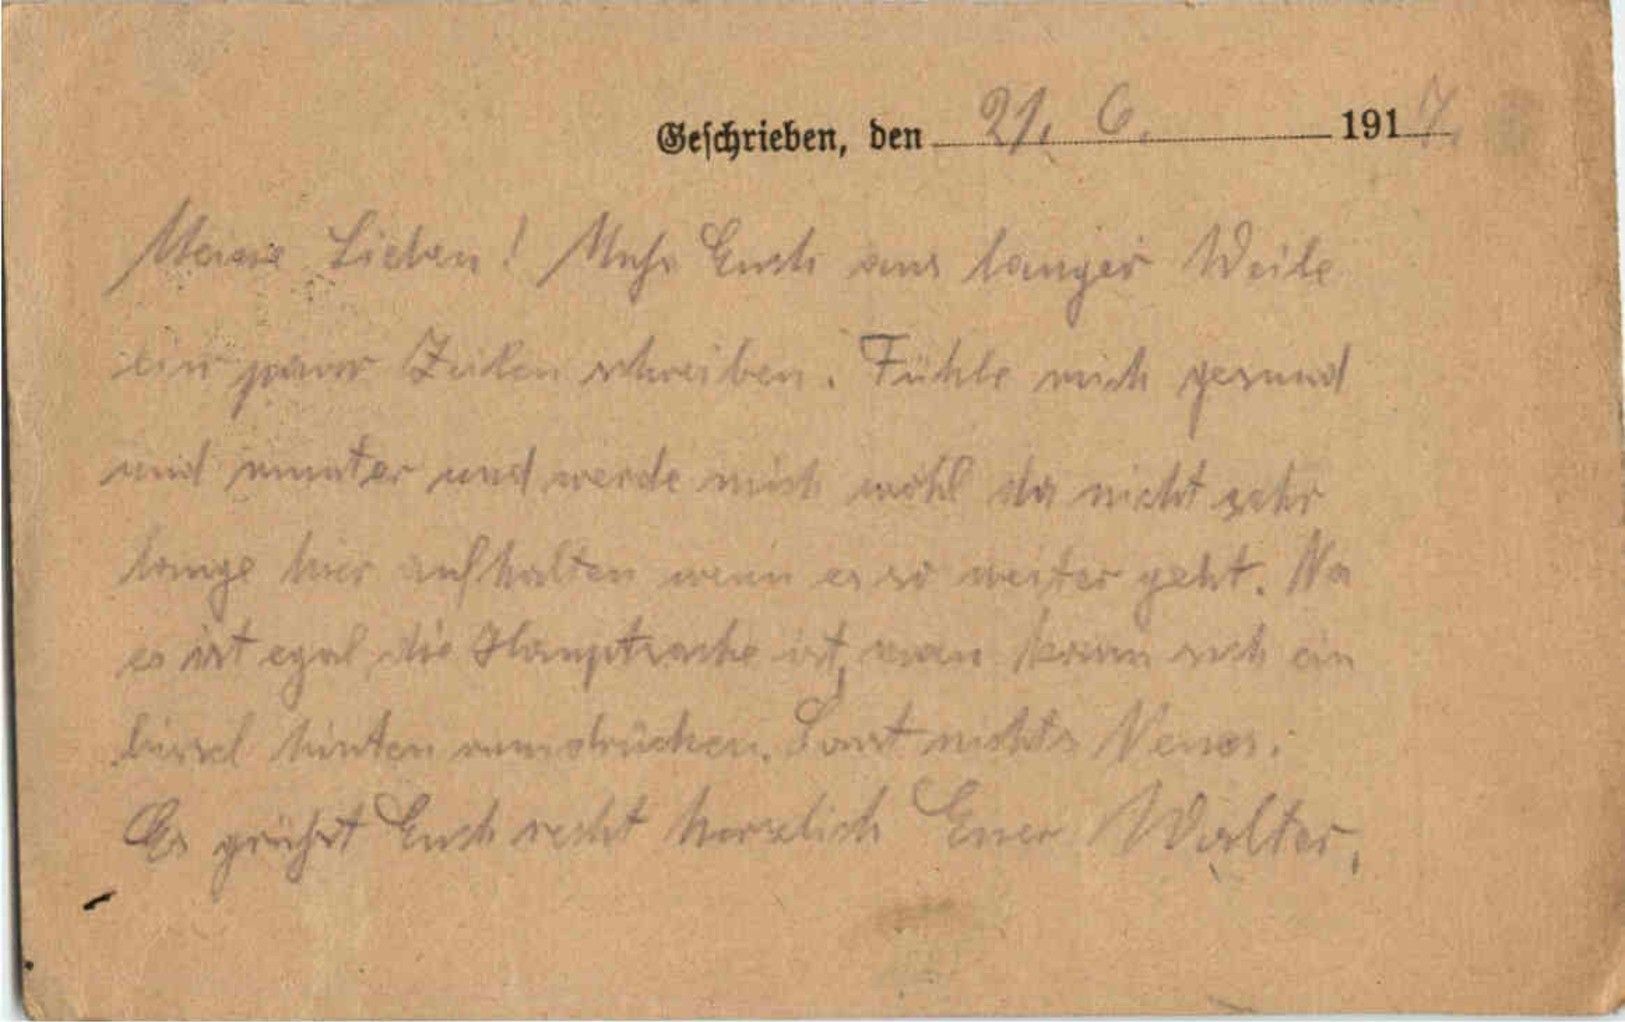 Geschrieben, den 21. 6. 1917.
Meine Lieben! Muß Euch aus langer Weile
ein paar Zeilen schreiben. Fühle mich gesund
und munter und werde mich wohl da nicht sehr
lange hier aufhalten wenn es so weiter geht. Na
es ist egal die Hauptsache ist, man kann sich ein
bissel hinten rumdrücken. Sonst nichts Neues.
Es grüßt Euch recht herzlich Euer Walter.